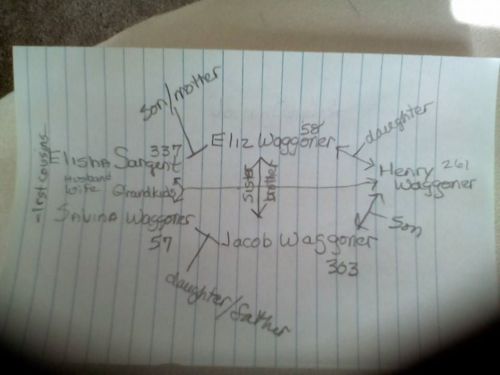 son/motter
58
Eliz Waggoner
daughter
337
Elisha Sargent
-1rst cousins-
Husband
wife
Grandkids
sister
brother
Henry 261
Waggoner
Savina Waggoner
57
Jacob Waggoner
303
Son
daughter/father